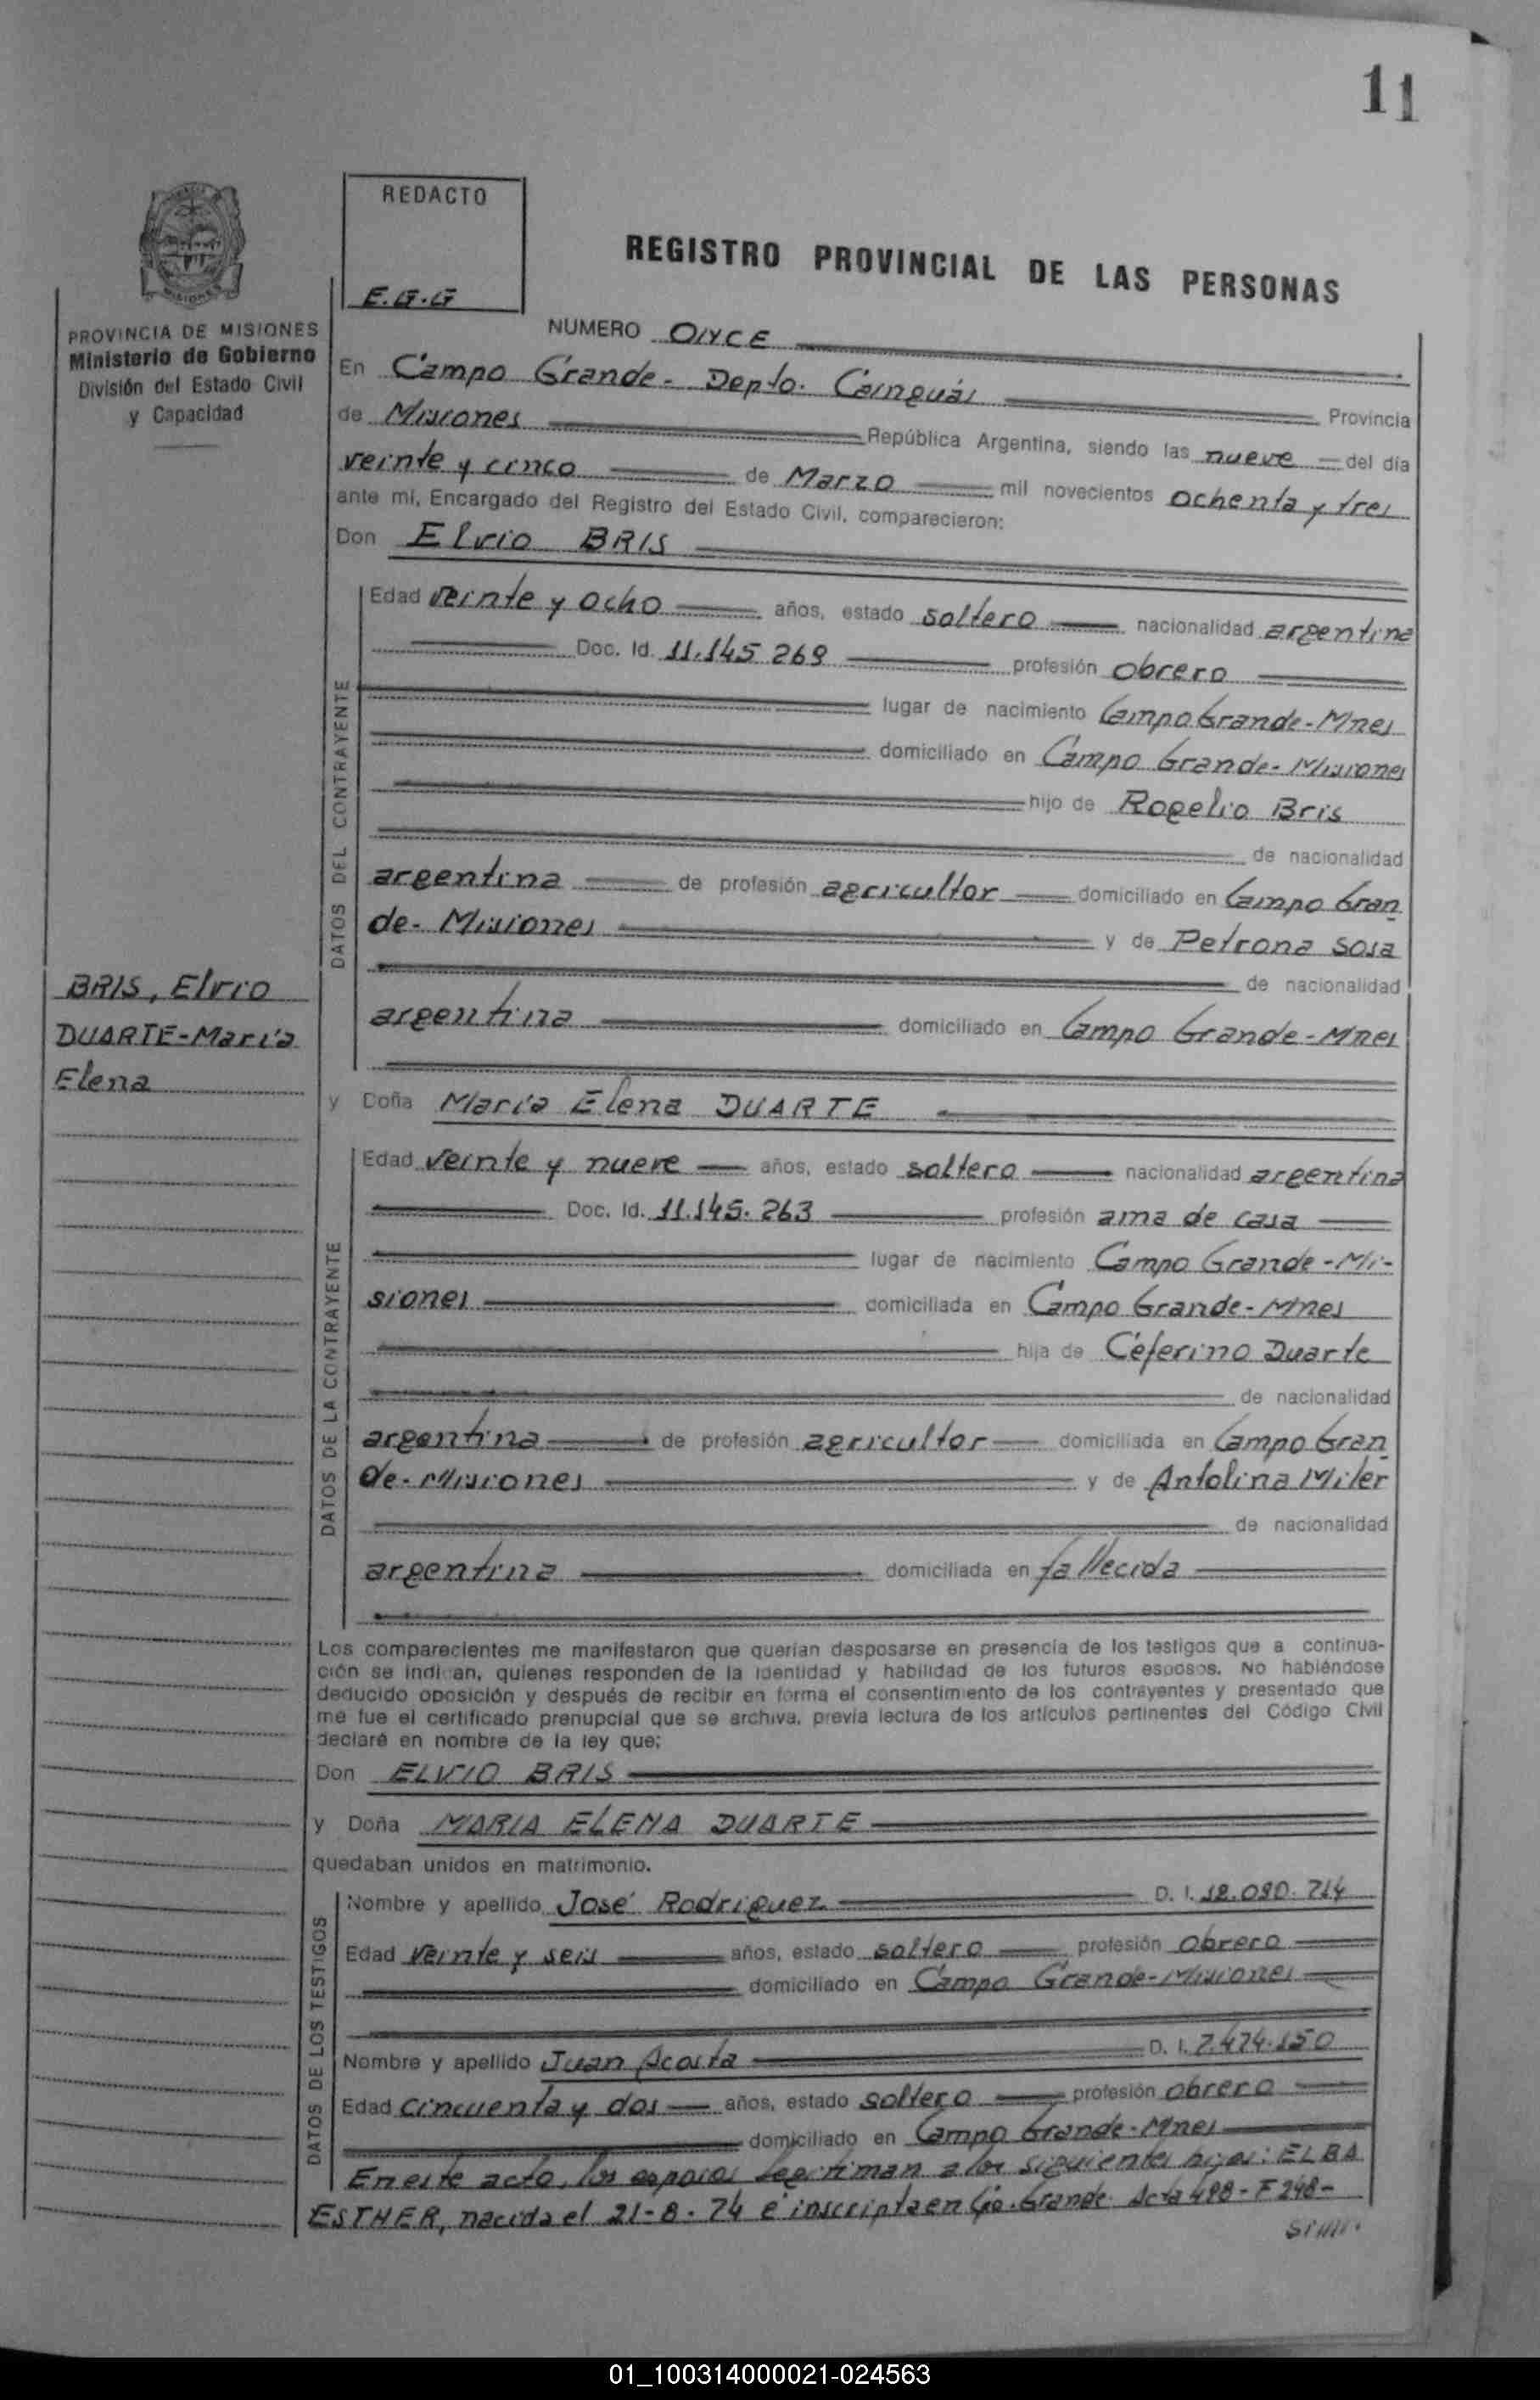 11
REDACTO
E.G.G
REGISTRO PROVINCIAL DE LAS PERSONAS
PROVINCIA DE MISIONES
Ministerio de Gobierno
División del Estado Civil
y Capacidad
NUMERO ONCE
En Campo Grande - Depto. Cainguás Provincia
de Misiones República Argentina, siendo las nueve del día
veinte y cinco de Marzo mil novecientos ochenta y tres
ante mí, Encargado del Registro del Estado Civil, comparecieron:
Don Elvio BRIS
DATOS DEL CONTRAYENTE
Edad veinte y ocho años, estado soltero nacionalidad argentina
Doc. Id. 11.145.269 profesión obrero
lugar de nacimiento Campo Grande - Mnes
domiciliado en Campo Grande - Misiones
hijo de Rogelio Bris
de nacionalidad
argentina de profesión agricultor domiciliado en Campo Gran
de - Misiones y de Petrona Sosa
de nacionalidad
argentina domiciliado en Campo Grande - Mnes
BRIS, Elvio
DUARTE - María
Elena
y Doña María Elena DUARTE
DATOS DE LA CONTRAYENTE
Edad veinte y nueve años, estado soltero nacionalidad argentina
Doc. Id. 11.145.263 profesión ama de casa
lugar de nacimiento Campo Grande - Mi-
siones domiciliada en Campo Grande - Mnes
hija de Ceferino Duarte
de nacionalidad
argentina de profesión agricultor domiciliada en Campo Gran
de - Misiones y de Antolina Miler
de nacionalidad
argentina domiciliada en fallecida
Los comparecientes me manifestaron que querían desposarse en presencia de los testigos que a continua-
ción se indican, quienes responden de la identidad y habilidad de los futuros esposos. No habiéndose
deducido oposición y después de recibir en forma el consentimiento de los contrayentes y presentado que
me fue el certificado prenupcial que se archiva, previa lectura de los artículos pertinentes del Código Civil
declaré en nombre de la ley que:
Don ELVIO BRIS
y Doña MARIA ELENA DUARTE
quedaban unidos en matrimonio.
DATOS DE LOS TESTIGOS
Nombre y apellido José Rodriguez D. I. 12.090.714
Edad veinte y seis años, estado soltero profesión obrero
domiciliado en Campo Grande - Misiones
Nombre y apellido Juan Acosta D. I. 7.474.150
Edad cincuenta y dos años, estado soltero profesión obrero
domiciliado en Campo Grande - Mnes
En este acto, los esposos legitiman a los siguientes hijos: ELBA
ESTHER, nacida el 21-8-74 e inscripta en Gpo. Grande Acta 498 - F 248 -
01_100314000021-024563